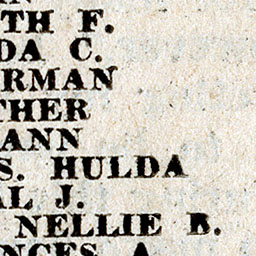 TH F.
DA C.
RMAN
THER
ANN
S. HULDA
AL J.
NELLIE B.
NCES A